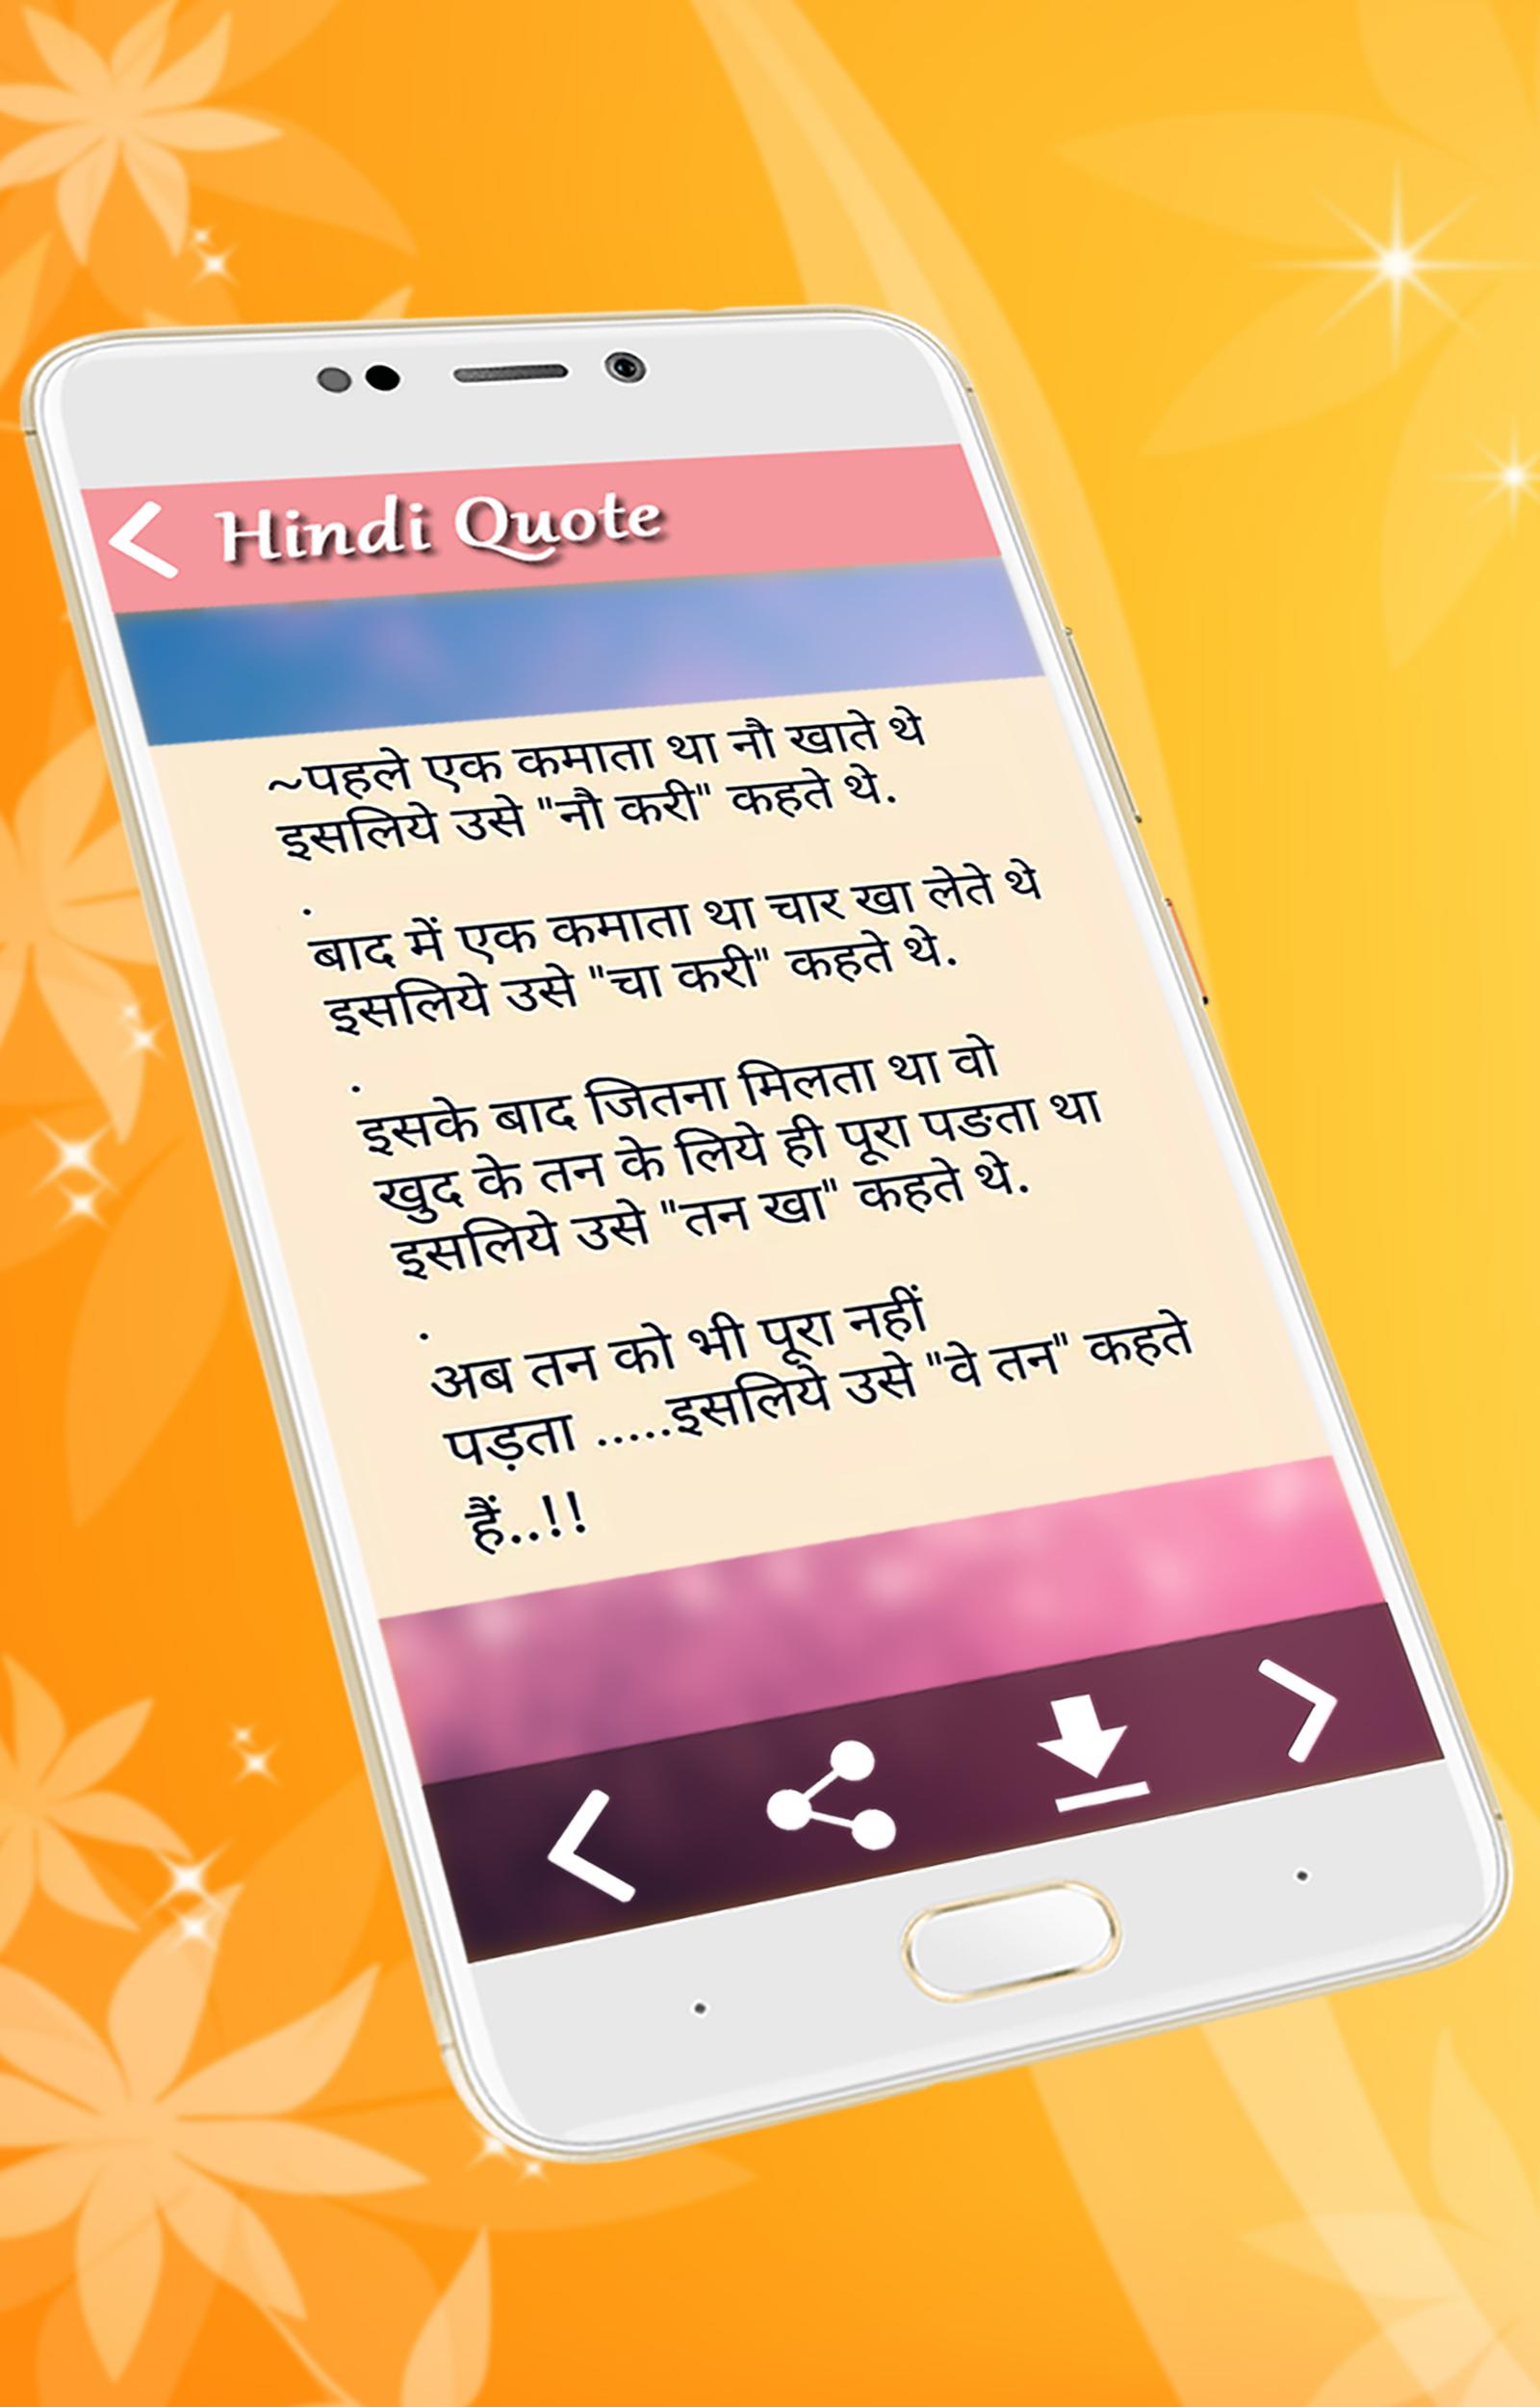 Hindi Quote
~पहले एक कमाता था नौ खाते थे
इसलिये उसे "नौ करी" कहते थे.
.
बाद में एक कमाता था चार खा लेते थे
इसलिये उसे "चा करी" कहते थे.
.
इसके बाद जितना मिलता था वो
खुद के तन के लिये ही पूरा पङता था
इसलिये उसे "तन खा" कहते थे.
.
अब तन को भी पूरा नहीं
पड़ता .....इसलिये उसे "वे तन" कहते
हैं..!!